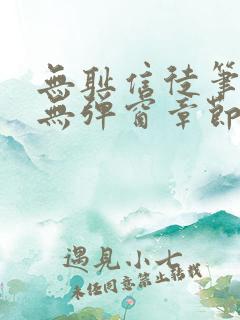 無耻信徒筆
無彈窗章節
遇見小七
未任同意禁止轉載